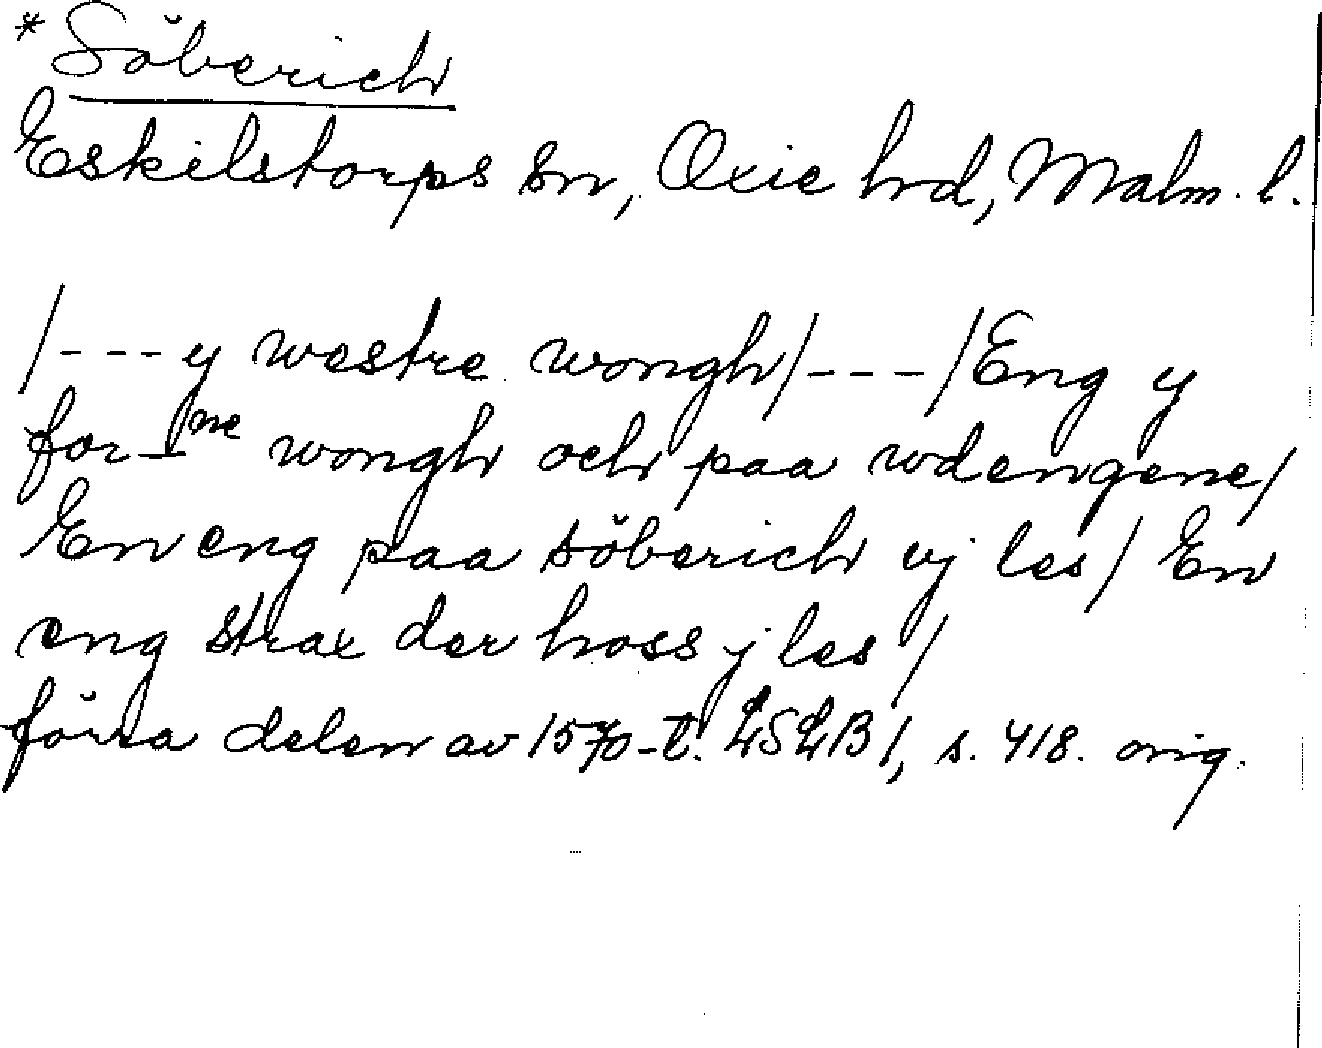 *Söberich
Eskilstorps sn, Oxie hd, Malm. l.
/--- y westre wongh/---/Eng y
for-ne wongh och paa wdengene/
En eng paa söberich vj les/ En
eng strax der hoss j les/
förra delen av 1570-t. LSLB 1, s. 418. orig.